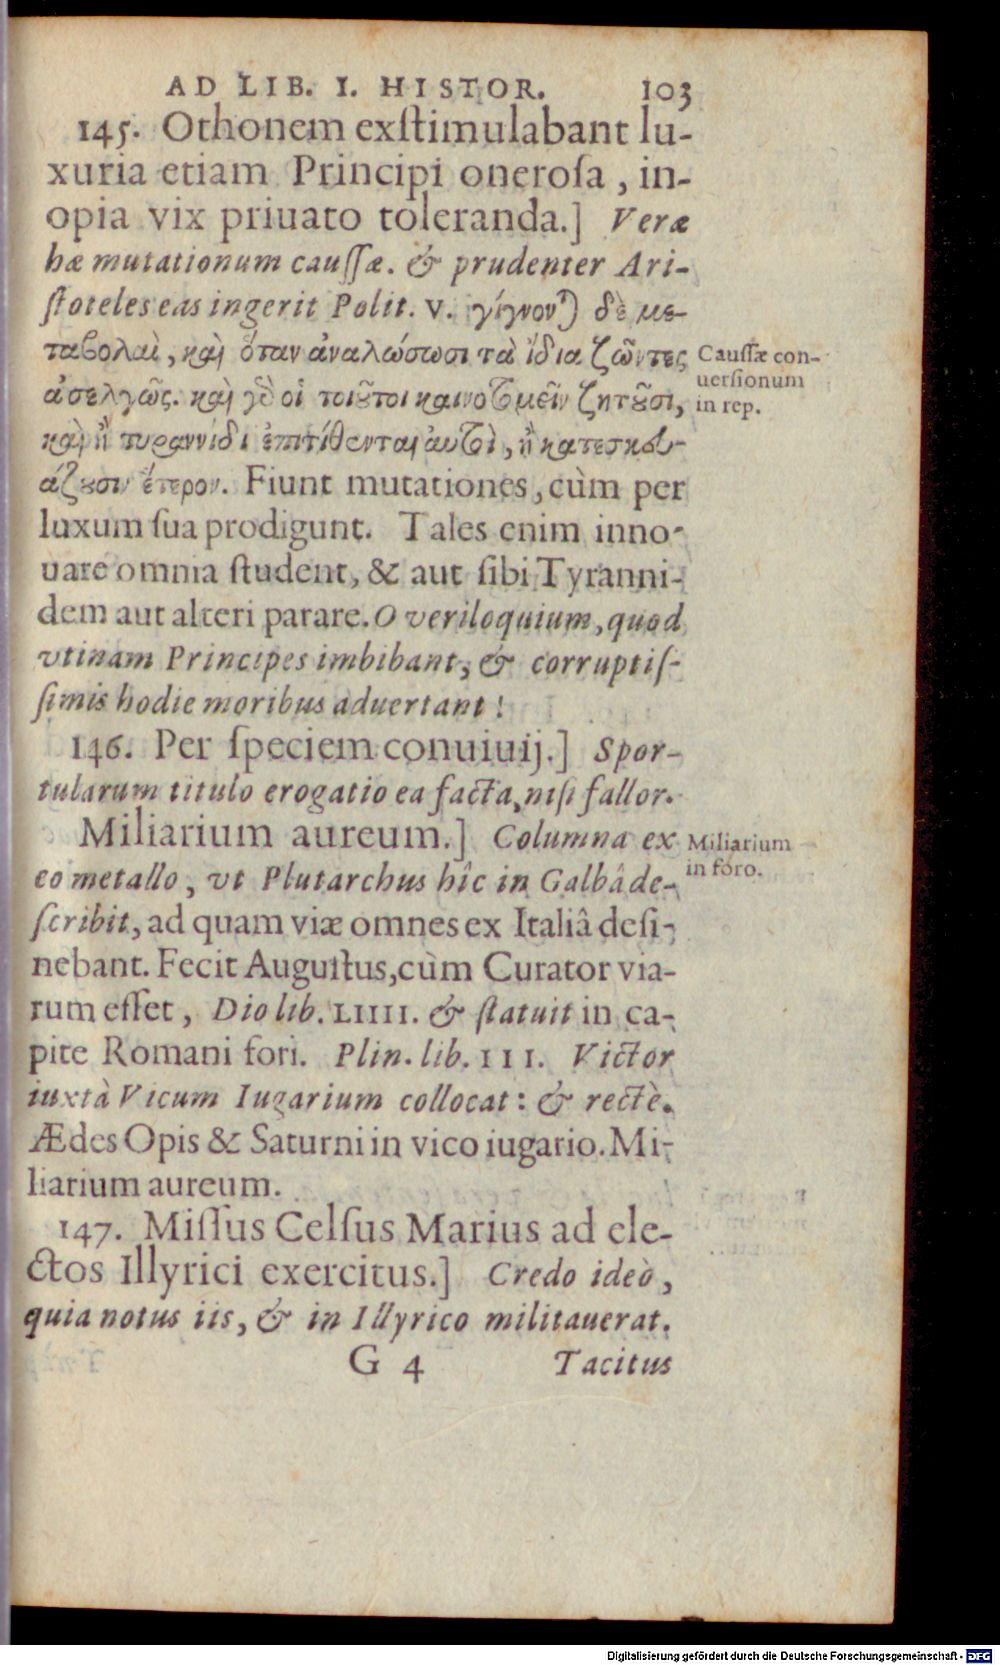 AD LIB. I. HISTOR. 103
145. Othonem exſtimulabant lu-
xuria etiam Principi oneroſa, in-
opia vix priuato toleranda.] Veræ
hæ mutationum cauſſæ. & prudenter Ari-
ſtoteles eas ingerit Polit. V. γίγνονται δὲ με-
ταβολαὶ, καὶ ὅταν ἀναλώσωσι τὰ ἴδια ζῶντες
ἀσελγῶς. καὶ γὰρ οἱ τοιοῦτοι καινοτομεῖν ζητοῦσι,
καὶ ἢ τυραννίδι ἐπιτίθενται αὐτοὶ, ἢ κατασκευ-
άζουσιν ἕτερον. Fiunt mutationes, cùm per
luxum ſua prodigunt. Tales enim inno-
uare omnia ſtudent, & aut ſibi Tyranni-
dem aut alteri parare. O veriloquium, quod
vtinam Principes imbibant, & corruptiſ-
ſimis hodie moribus aduertant!
Cauſſæ con-
uerſionum
in rep.
146. Per ſpeciem conuiuij.] Spor-
tularum titulo erogatio ea facta, niſi fallor.
Miliarium aureum.] Columna ex
eo metallo, vt Plutarchus hîc in Galbâ de-
ſcribit, ad quam viæ omnes ex Italiâ deſi-
nebant. Fecit Auguſtus, cùm Curator via-
rum eſſet, Dio lib. LIIII. & ſtatuit in ca-
pite Romani fori. Plin. lib. III. Victor
iuxtà Vicum Iugarium collocat: & rectè.
Ædes Opis & Saturni in vico iugario. Mi-
liarium aureum.
Miliarium
in foro.
147. Miſſus Celſus Marius ad ele-
ctos Illyrici exercitus.] Credo ideò,
quia notus iis, & in Illyrico militauerat.
G 4 Tacitus
Digitalisierung gefördert durch die Deutsche Forschungsgemeinschaft - DFG